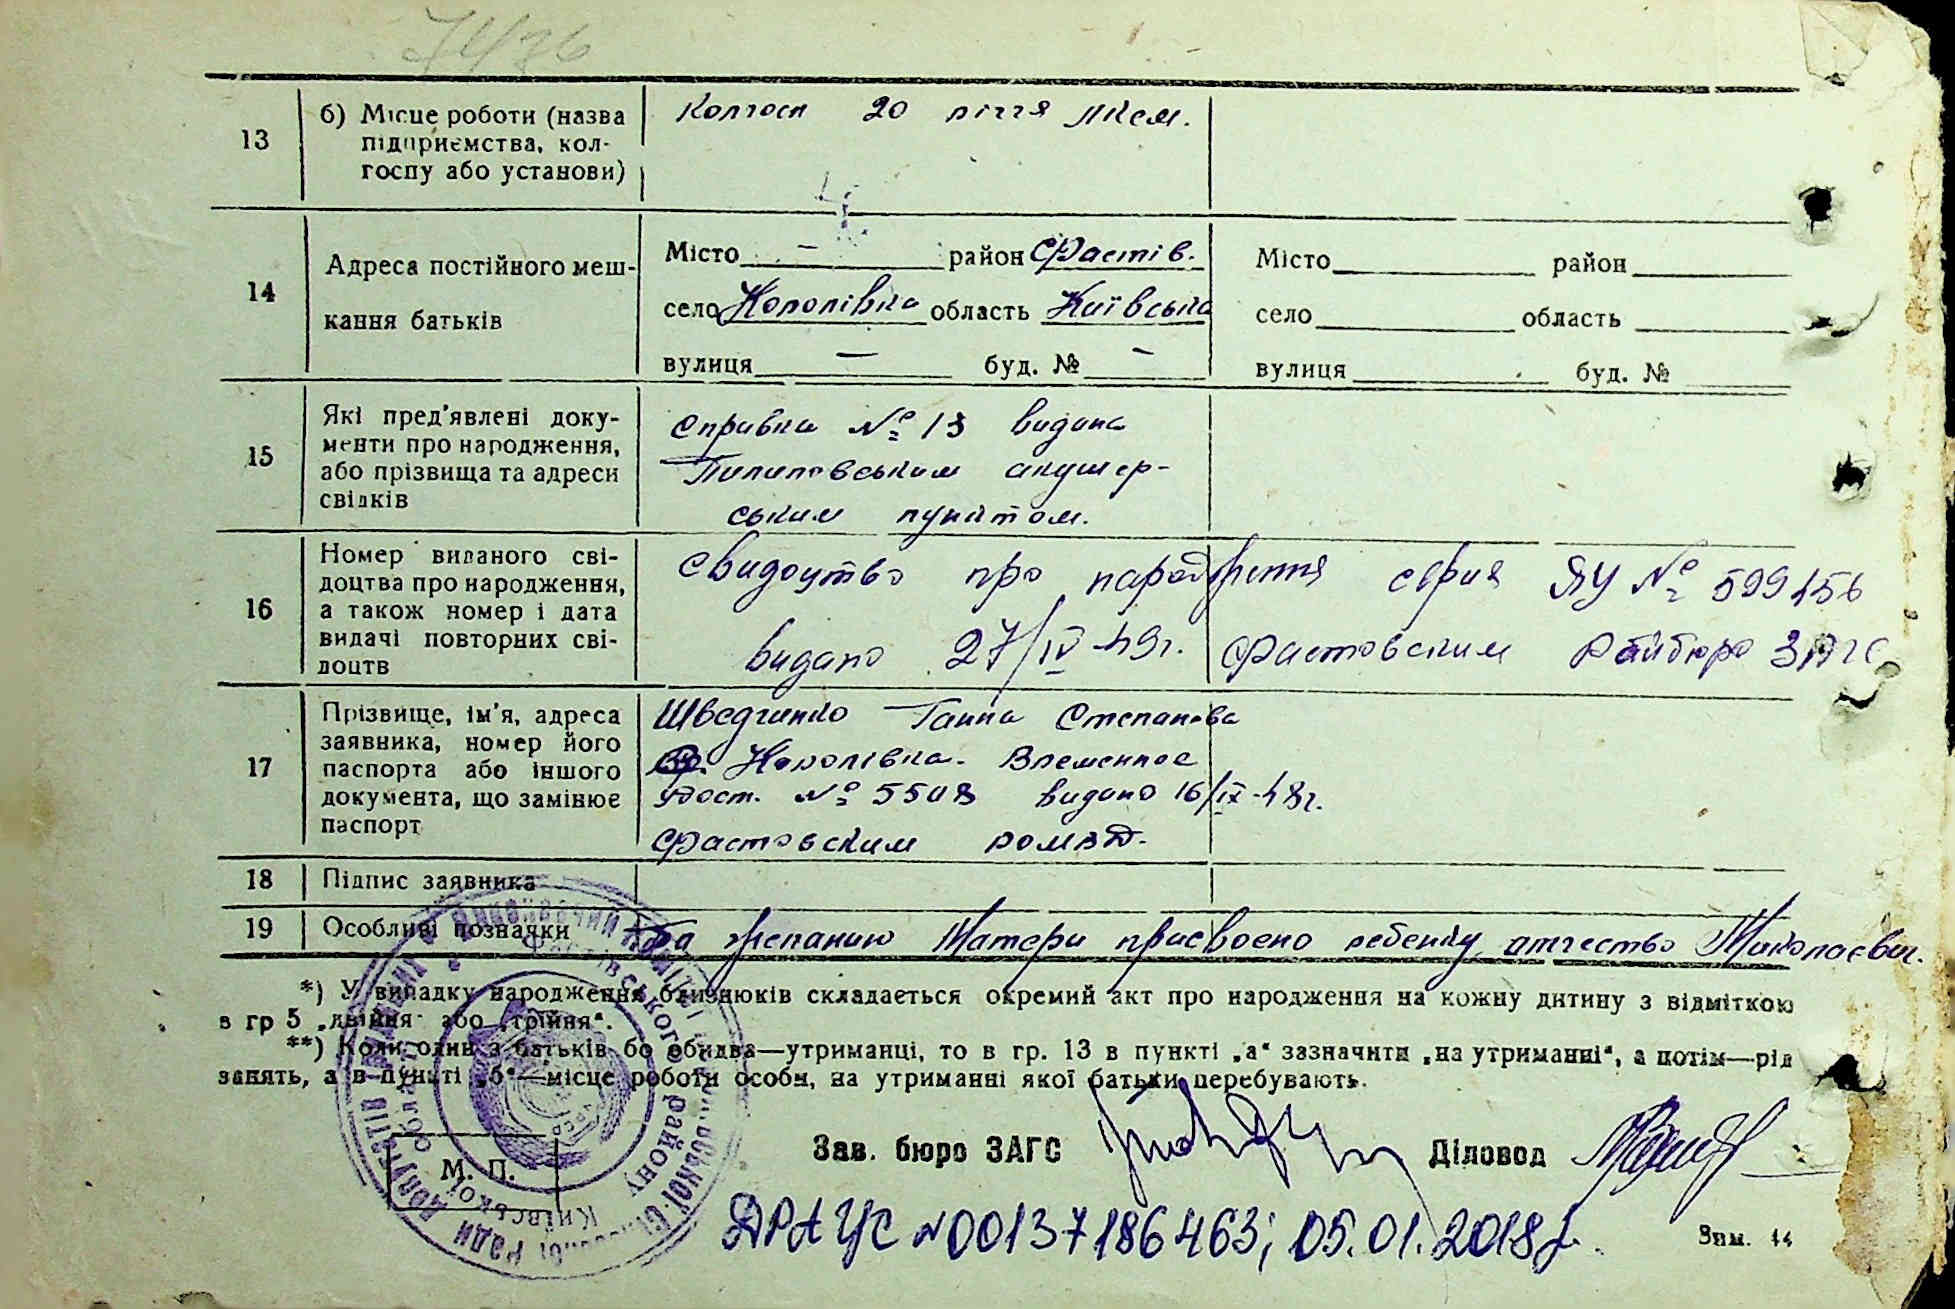 13 б) Місце роботи (назва підприємства, кол-
госпу або установи)
Колгосп 20 річчя ЛКСМ.
14 Адреса постійного меш-
кання батьків
Місто – район Фастів.
село область Київська
вулиця — буд. № –
Місто район
село область
вулиця буд. №
15 Які пред'явлені доку-
менти про народження,
або прізвища та адреси
свідків
Справка № 13 видана
Пилиповським акушер-
ським пунктом.
16 Номер виданого сві-
доцтва про народження,
а також номер і дата
видачі повторних сві-
доцтв
Свидоцтво про народження серия ЯУ № 599456
видано 27/IV-49г. Фастовским Райбюро ЗАГС
17 Прізвище, ім'я, адреса
заявника, номер його
паспорта або іншого
документа, що замінює
паспорт
Ганна Степановна
Временное
удост. № 5508 видано 16/IX-48г.
Фастовским РОМВД.
18 Підпис заявника
19 Особливі позначки
По желанию Матери присвоено ребенку отчество Миколаєвич.
*) У випадку народження близнюків складається окремий акт про народження на кожну дитину з відміткою
в гр 5 „двійня" або „трійня".
**) Коли один з батьків бо обидва—утриманці, то в гр. 13 в пункті „а" зазначити „на утриманні", а потім—рід
занять, а в пункті „б"—місце роботи особи, на утриманні якої батьки перебувають.
М. П.
Зав. бюро ЗАГС
Діловод
ДРАЦС №00137186463; 05.01.2018р.
Зим. 44